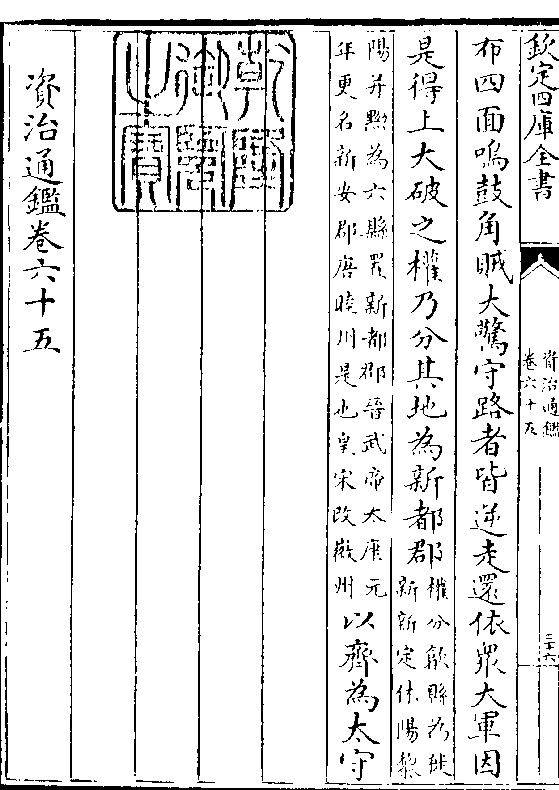 欽定四庫全書
資治通鑑
卷六十五
三十六
布四面鳴鼓角賊大驚守路者皆逆走還依衆大軍因
是得上大破之權乃分其地為新都郡
權分歙縣為始
新新定休陽黎
陽并黟為六縣置新都郡晉武帝太康元
年更名新安郡唐睦州是也皇宋改嚴州
以齊為太守
乾隆御覽之寶
資治通鑑卷六十五